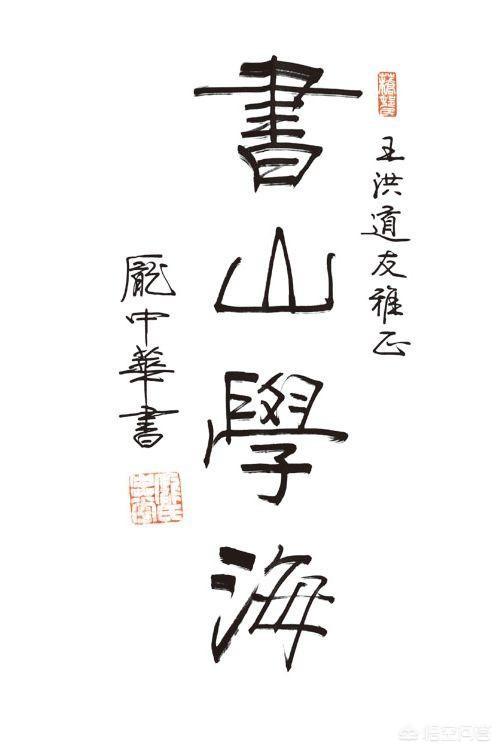 王洪道友雅正
書山學海
龐中華書
悟空问答